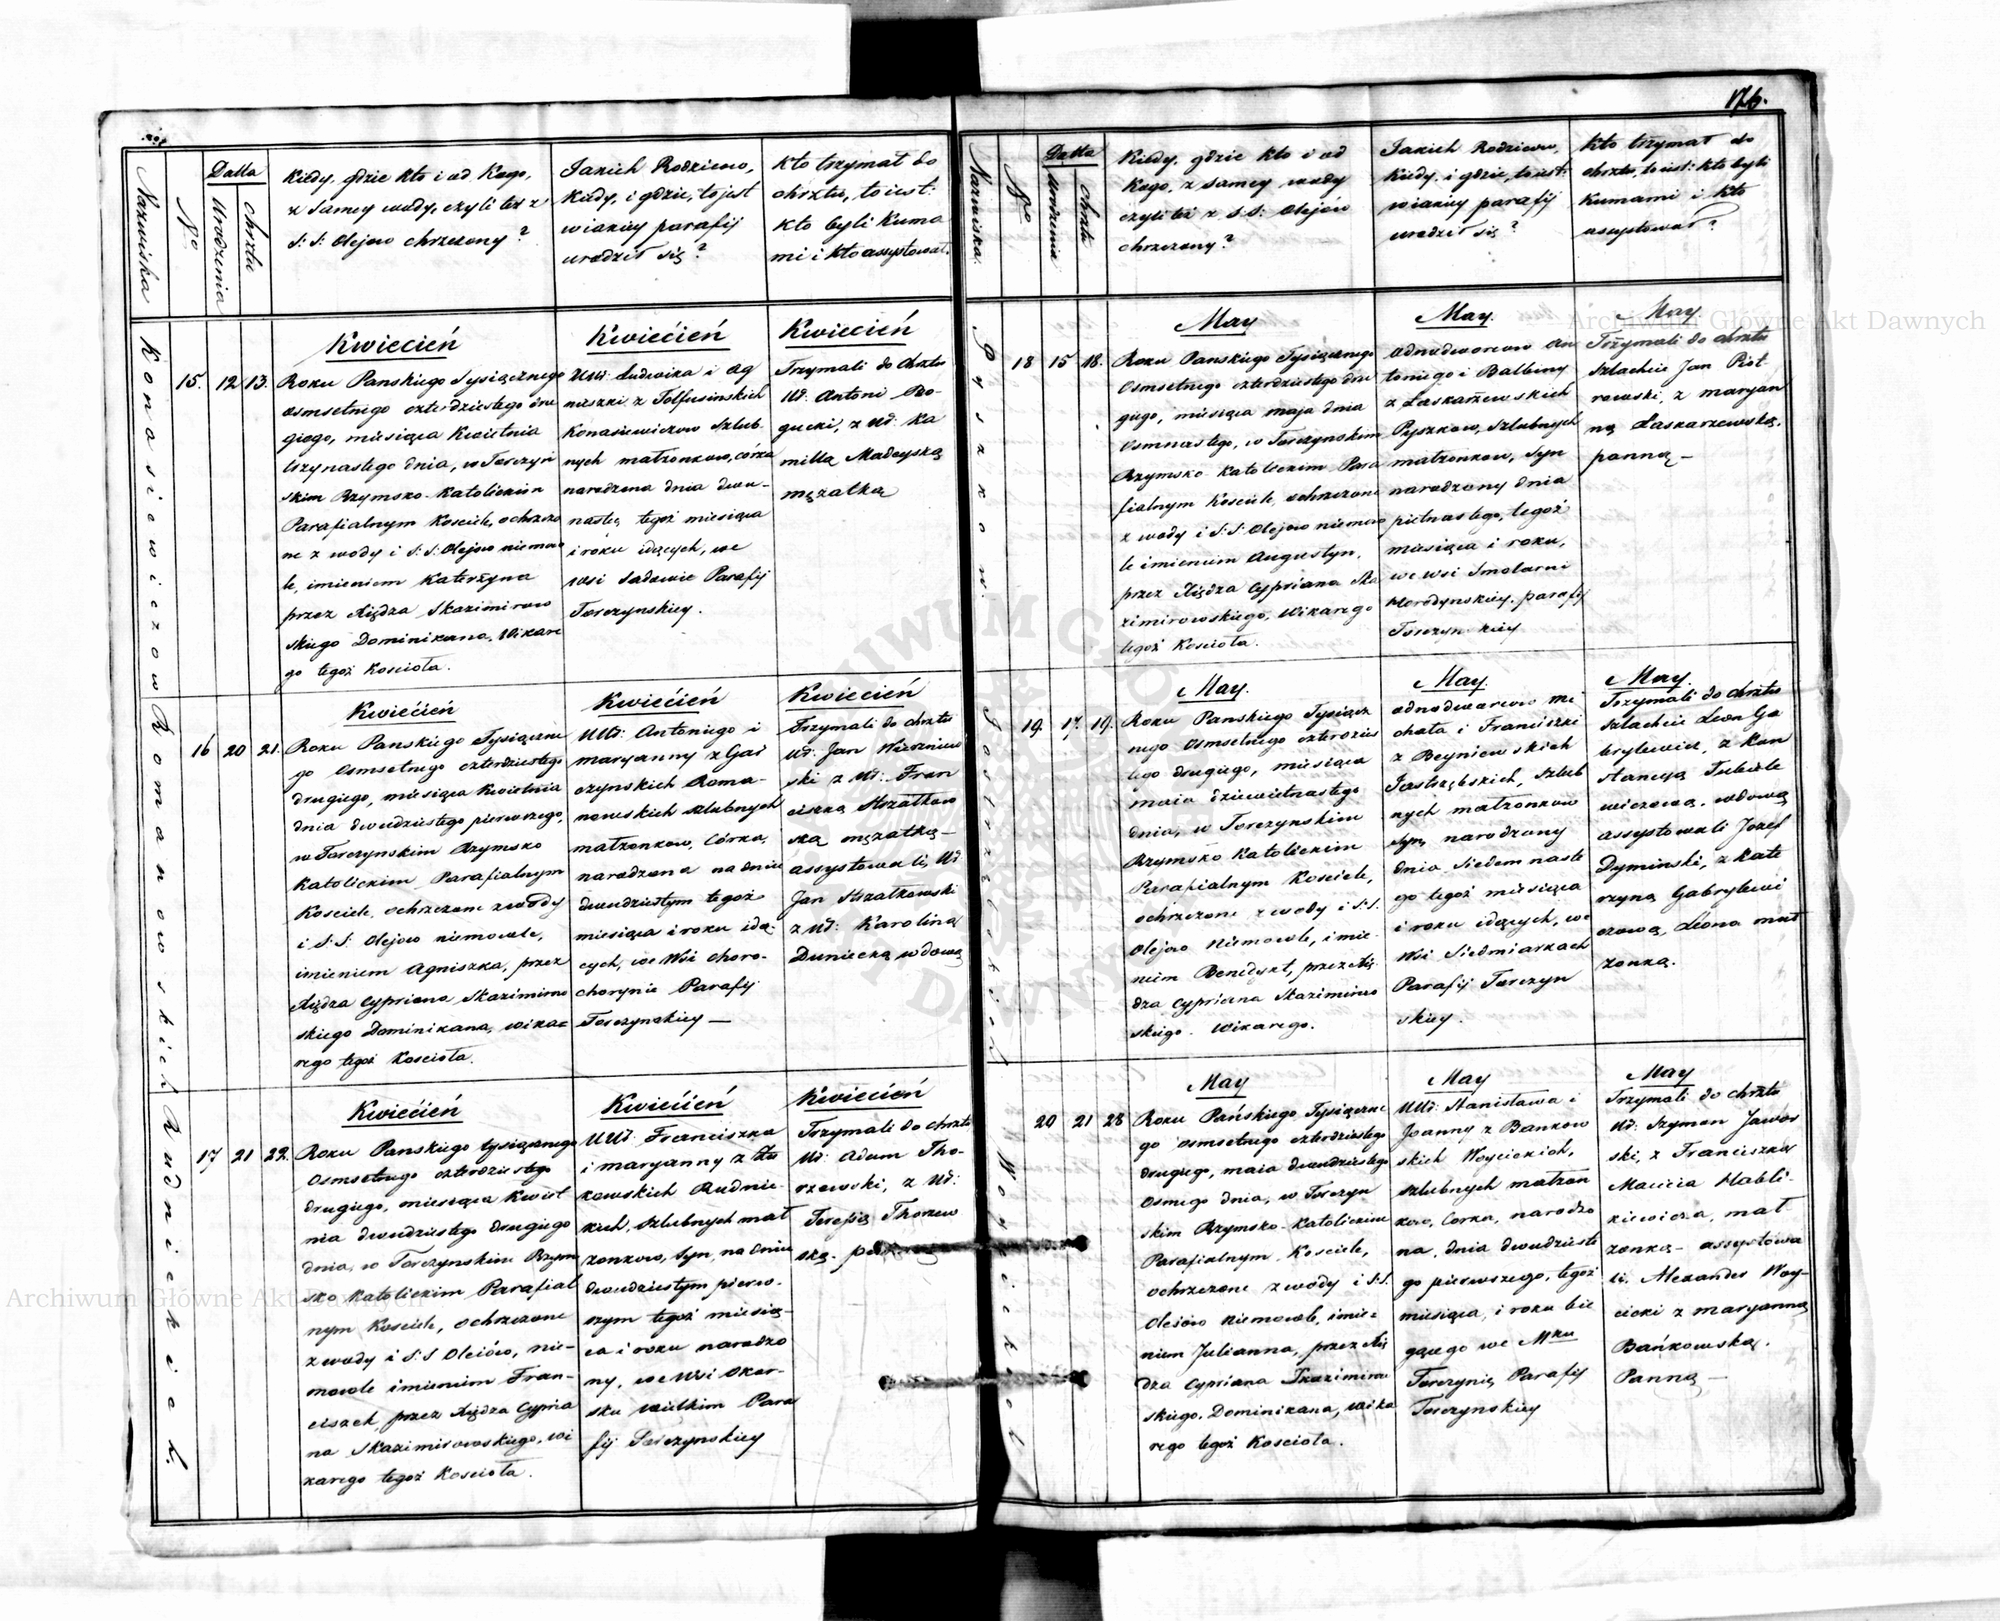 176.
Nazwiska
No
Datta
Urodzenia
Chrztu
Kiedy, gdzie kto i od Kogo,
z Samey wody, czyli też z
S: S: Olejow chrzczony?
Jakich Rodzicow,
Kiedy, i gdzie, to jest
w iakiey parafij
urodził się?
Kto trzymał do
chrztu, to iest:
Kto byli Kuma
mi i kto assystował.
Konasiewiczow
15. 12 13.
Kwiecień
Roku Panskiego Tysiącznego
osmsetnego czterdziestego dru
giego, miesiąca Kwietnia
trzynastego dnia, w Torczyń
skim Rzymsko-Katolickim
Parafialnym Kosciele, ochrzczo
ne z wody i S: S: Olejow niemow
le, imieniem Katerzyna
przez Xiędza Skazimirow
skiego Dominikana, Wikare
go tegoż Koscioła.
Kwiećień
UUr: Ludwika i Ag
nieszki z Tolfusinskich
Konasiewiczow Szlub-
nych małzonkow, córka
narodzona dnia dwu-
nastego tegoż miesiąca
i roku idących, we
wsi Sadowie Parafij
Torczynskiey.
Kwiecień
Trzymali do Chrztu
Ur: Antoni Ro-
gucki, z Ur: Ka
millą Madeyską
mężatką
Romanowskich
16 20 21.
Kwiećień
Roku Panskiego Tysiączne
go Osmsetnego czterdziestego
drugiego, miesiąca Kwietnia
dnia dwudziestego pierwszego,
w Torczynskim Rzymsko
Katolickim Parafialnym
Kosciele, ochrzczone z wody
i S: S: Olejow niemowle,
imieniem Agniszka, przez
Xiędza Cypriana Skazimirow
skiego Dominikana, wika=
rego tegoż Kosciola.
Kwiećień
UUr: Antoniego i
maryanny z Gar
czynskich Roma-
nowskich szlubnych
małzonkow, Córka,
narodzona na dniu
dwudziestym tegoż
miesiąca i roku idą-
cych, we Wsi Choro-
chorynie Parafij
Torczynskiey —
Kwiecień
Trzymali do chrztu
Ur: Jan Wiszniew
ski z Ur: Fran
ciszką Strzałkow
ską mężatką —
assystowali, Ur
Jan Strzałkowski
z Ur: Karoliną
Duniecką wdową
Rudnickich.
17 21 22.
Kwiećień
Roku Panskiego tysiącznego
Osmsetnego czterdziestego
drugiego, miesiąca Kwiet
nia dwudziestego drugiego
dnia, w Torczynskim Rzym
sko Katolickim Parafial
nym Kosciele, ochrzczone
z wody i S: S Oleiów, nie-
mowle imieniem Fran-
ciszek, przez Xiędza Cypria
na Skazimirowskiego, wi
karego tegoż Kosciola.
Kwiećień
UUr: Franciszka
i maryanny z Żu
kowskich Rudnic-
kich, szlubnych mał
zonkow, syn, na dniu
dwudziestym pierw-
szym tegoż miesią-
ca i roku narodzo
ny, we Wsi Skor-
sku wielkim Para
fij Torczynskiey
Kwiecień
Trzymali do chrztu
Ur: Adam Tho-
rzewski, z Ur:
Teresią Thorzew
ską.
Nazwiska.
No
Datta
Urodzenia
Chrztu
Kiedy, gdzie kto i od
Kogo, z samey wody
czyli też z S. S: Olejów
chrzczony?
Jakich Rodzicow,
Kiedy i gdzie, to iest:
w iakiey parafij
urodził się?
Kto trzymał do
chrztu, to iest: kto byli
Kumami i kto
assystował?
Pyszkow.
18 15 18.
May
Roku Panskiego Tysiącznego
Osmsetnego czterdziestego dru
giego, miesiąca maja dnia
Osmnastego, w Torczynskim
Rzymsko-Katolickim Para
fialnym Kosciele, ochrzczone
z wody i S: S: Olejow niemow
le imieniem Augustyn,
przez Xiędza Cypriana Ska
zimirowskiego, Wikarego
tegoż Kościoła.
May.
Odnodworcow An
toniego i Balbiny
z Łaskarzewskich
Pyszkow, szlubnych
małżonkow, Syn
narodzony dnia
pietnastego, tegoż
miesiąca i roku,
we wsi Smolarni
Horodynskiey, parafij
Torczynskiey
May
Trzymali do chrztu
Szlachcic Jan Piot
rowski, z maryan
ną Łaskarzewską,
panną —
Jastrzębskich
19. 17. 19.
May.
Roku Panskiego Tysiącz
nego Osmsetnego czterdzies
tego drugiego, miesiąca
maia dziewietnastego
dnia, w Torczynskim
Rzymsko Katolickim
Parafialnym Kosciele,
ochrzczone z wody i S: S.
Olejow Niemowle, imie-
niem Benidykt, przez Xię-
dza Cypriana Skazimirow
skiego. Wikarego.
May.
odnodworcow mi
chała i Franciszki
z Beyniewskich
Jastrzębskich, szlub
nych małżonkow
syn, narodzony
dnia Siedemnaste
go tegoż miesiąca
i roku idących, we
Wsi Siedmiarkach
Parafij Torczyn
skiey.
May.
Trzymali do Chrztu
Szlachcic Leon Ga
brylewicz, z Kon
stancyą Tubiele
wiczową, wdową
assystowali Jozef
Dyminski, z Kate
rzyną Gabrylewi
czową, Leona mał
żonką.
Woycickich
20 21 28
May
Roku Pańskiego Tysiączne
go Osmsetnego czterdziestego
drugiego, maia dwudziestego
Osmego dnia, w Torczyn
skim Rzymsko-Katolickim
Parafialnym Kosciele,
ochrzczone z wody i S: S.
Oleiow niemowle, imie=
niem Julianna, przez Xię
dza Cypriana Skazimirow
skiego. Dominikana, wika
rego tegoż Kosciola.
May
UUr: Stanisława i
Joanny z Bankow
skich Woycickich,
szlubnych małzon
kow, Corka, narodzo
na, dnia dwudzieste
go pierwszego, tegoż
miesiąca, i roku bie
gącego we Mku
Torczynie Parafij
Torczynskiey
May
Trzymali do chrztu
Ur. Szymon Jawor
ski, z Franciszką
Macieia Habli-
kiewicza, mał
zonką — assystowa
li, Alexander Woy-
cicki z maryanną
Bańkowską.
Panną —
Archiwum Główne Akt Dawnych
Archiwum Główne Akt Dawnych